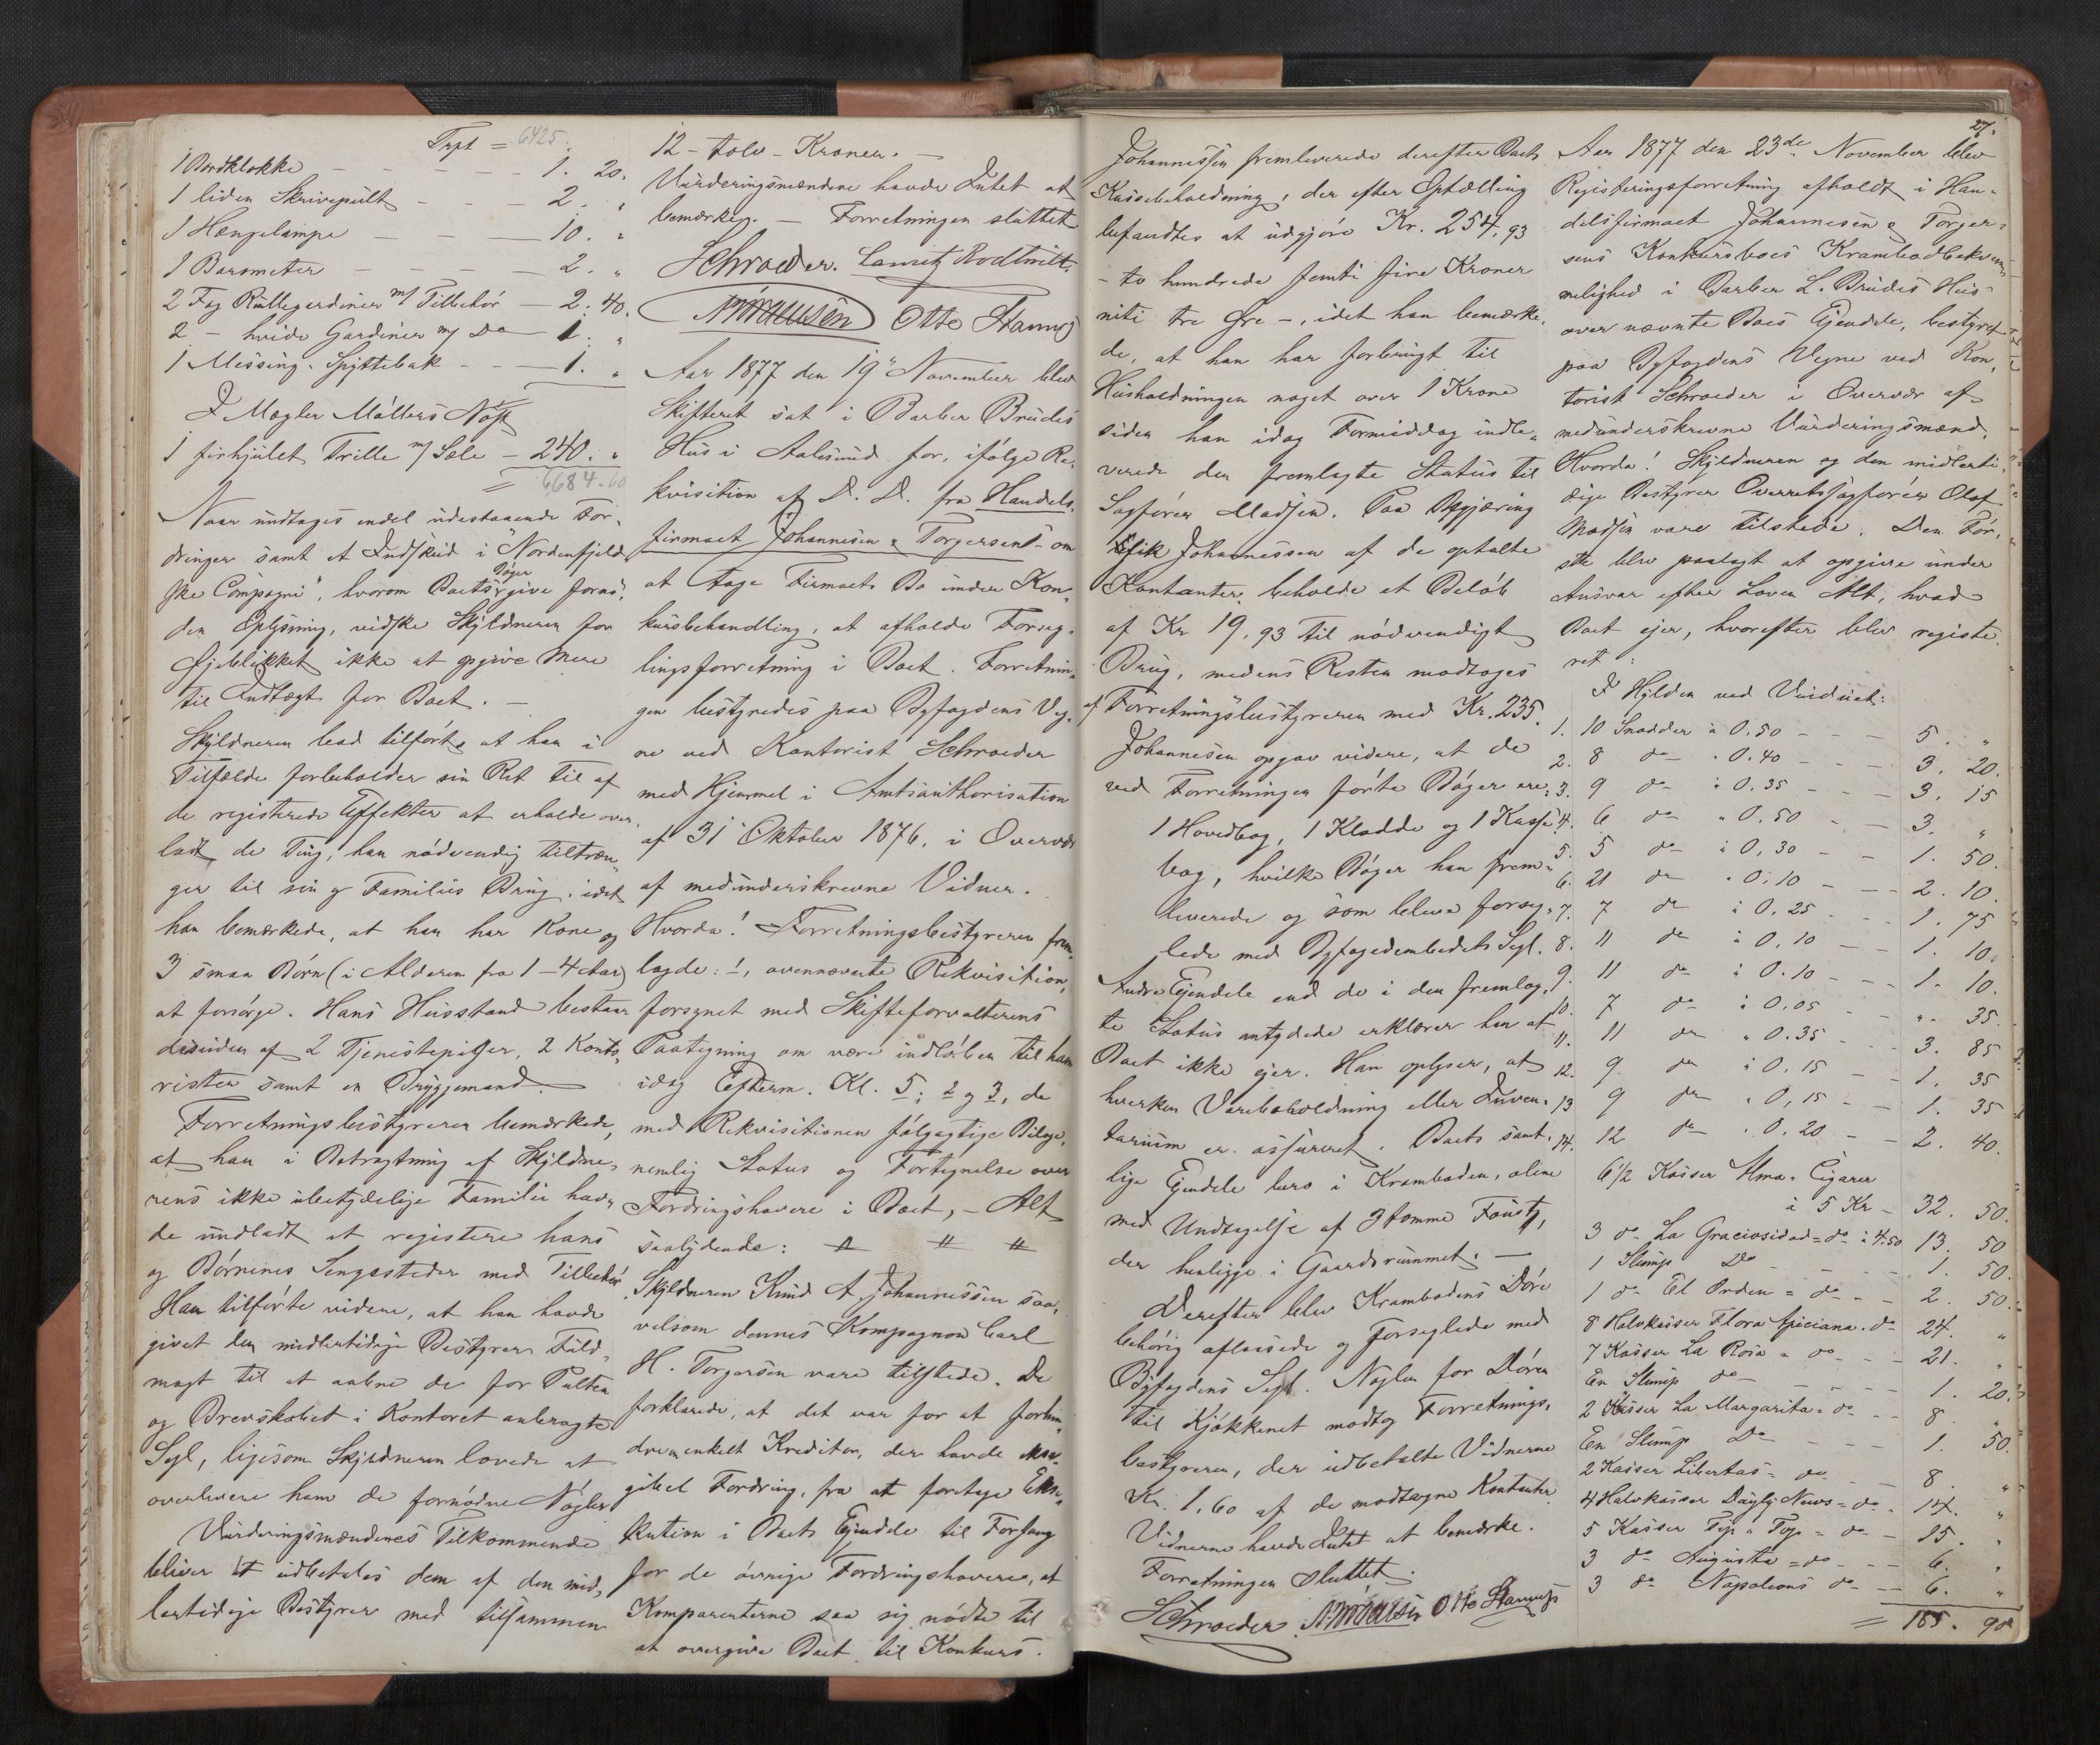 Trpt = 6425.
1 Bordklokke - - - - - 1. 20.
1 liden Skrivepult - - - 2. "
1 Hængelampe - - - 10. "
1 Barometer - - - - 2. "
2 Fag Rullegardiner m/ Tilbehør - 2. 40.
2 - hvide Gardiner m/ Do - 1. "
1 Messing-Spyttebak - - - 1. "
I Mægler Møllers Nøst
1 firhjulet Trille m/ Sele - 240. "
= 6684.60
Naar undtages endel udestaaende For-
dringer samt et Indskud i "Nordenfjeld
ske Compagni", hvorom Boets Bøger give forøn-
den Oplysning, vidste Skyldneren for
Øjeblikket ikke at opgive mere
til Indtægt for Boet. -
Skyldneren bad tilført, at han i
Tilfælde forbeholder sin Ret til af
de registerede Effekter at erholde over-
ladt de Ting, han nødvendig tiltræn-
ger til sin og Families Brug, idet
han bemærkede, at han har Kone og
3 smaa Børn (i Alderen fra 1-4 Aar)
at forsørge. Hans Husstand bestaar
desuden af 2 Tjenestepiger, 2 Konto-
rister samt en Bryggemand.
Forretningsbestyreren bemærkede,
at han i Betragtning af Skyldne-
rens ikke ubetydelige Familie hav-
de undladt at registere hans
og Børnenes Sengesteder med Tilbehør.
Han tilførte videre, at han havde
givet den midlertidige Bestyrer Fuld-
magt til at aabne de for Pulten
og Brevskabet i Kontoret anbragte
Segl, ligesom Skyldneren lovede at
overlevere ham de fornødne Nøgler
Vurderingsmændenes Tilkommende
bliver at udbetales dem af den mid-
lertidige Bestyrer med tilsammen
12 - tolv - Kroner. -
Vurderingsmændene havde Intet at
bemærke. - Forretningen sluttet
Schroeder. Lauritz Rodtwitt.
Otto Stamnes
Aar 1877 den 19de November blev
Skifteret sat i Barber Brudes
Hus i Aalesund for, ifølge Re-
kvisition af D. D. fra Handels-
firmaet Johannesen & Torgersen - om
at tage Firmaets Bo under Kon-
kursbehandling, at afholde Forseg-
lingsforretning i Boet. Forretnin-
gen bestyredes paa Byfogdens Veg-
ne ved Kontorist Schroeder
med Hjemmel i Amtsauthorisation
af 31 Oktober 1876, i Overvær
af medunderskrevne Vidner.
Hvorda! Forretningsbestyreren frem-
lagde: 1, ovennævnte Rekvisition,
forsynet med Skifteforvalterens
Paategning om være indløben til ham
idag Efterm. Kl. 5; 2 og 3, de
med Rekvisitionen følgagtige Bilage,
nemlig Status og Fortegnelse over
Fordringshavere i Boet, - Alt
saalydende: # # #
Skyldneren Knud A. Johannessen saa-
velsom dennes Kompagnon Carl
H. Torgersen vare tilstede. De
forklarede, at det var for at forhin-
dre en enkelt Kreditor, der havde exe-
gibel Fordring, fra at foretage Exe-
kution i Boets Ejendele til Forfang
for de øvrige Fordringshavere, at
Komparenterne saa sig nødte til
at overgive Boet til Konkurs.
Johannessen fremleverede derefter Boets
Kassebeholdning, der efter Optælling
befandtes at udgjøre Kr. 254,93
- to hundrede femti fire Kroner
niti tre Øre -, idet han bemærke-
de, at han har forbrugt til
Husholdningen noget over 1 Krone
siden han idag Formiddag indle-
verede den fremlagte Status til
Sagfører Madsen. Paa Begjæring
fik Johannessen af de optalte
Kontanter beholde et Beløb
af Kr 19,93 til nødvendigt
Brug, medens Resten modtages
af Forretningsbestyreren med Kr. 235.
Johannesen opgav videre, at de
ved Forretningen førte Bøger ere:
1 Hovedbog, 1 Kladde og 1 Kasse-
bog, hvilke Bøger han frem-
leverede og som bleve forseg-
lede med Byfogedembedets Segl.
Andre Ejendele end de i den fremlag-
te Status antydede erklærer han at
Boet ikke ejer. Han oplyser, at
hverken Varebeholdning eller Inven-
tarium er assureret. Boets samt-
lige Ejendele bero i Kramboden, alene
med Undtagelse af 3 tomme Foustg,
der henligge i Gaardsrummet. -
Derefter blev Krambodens Døre
behørig aflaasede og forseglede med
Byfogdens Segl. Nøglen for Døren
til Kjøkkenet modtog Forretnings-
bestyreren, der udbetalte Vidnerne
Kr. 1,60 af de modtagne Kontanter.
Vidnerne havde Intet at bemærke.
Forretningen sluttet.
Schroeder. Otto Stamnes
27.
Aar 1877 den 23de November blev
Registeringsforretning afholdt i Han-
delsfirmaet Johannesen & Torger-
sens Konkursboes Krambodbekvem-
melighed i Barber L. Brudes Hus
over nævnte Boes Ejendele, bestyret
paa Byfogdens Vegne ved Kon-
torist Schroeder i Overvær af
medunderskrevne Vurderingsmænd.
Hvorda! Skyldneren og den midlerti-
dige Bestyrer Overretssagfører Olaf
Madsen vare tilstede. Den Før-
ste blev paalagt at opgive under
Ansvar efter Loven Alt, hvad
Boet ejer, hvorefter blev registe-
ret:
I Hylden ved Vinduet:
1. 10 Snadder à 0.50 - - - 5. "
2. 8 do - " 0.40 - - - 3. 20.
3. 9 do à 0.35 - - - 3. 15
4. 6 do " 0.50 - - 3. "
5. 5 do à 0,30 - - 1. 50.
6. 21 do " 0.10 - - - 2. 10.
7. 7 do à 0.25 - - - 1. 75
8. 11 do à 0,10 - - 1. 10.
9. 11 do à 0.10 - - 1. 10.
10. 7 do à 0.05 - - - ". 35.
11. 11 do " 0.35 - - - 3. 85
12. 9 do à 0,15 - - 1. 35
13 9 do " 0,15 - - 1. 35
14. 12 do " 0.20 - - 2. 40.
6 1/2 Kasser Alma-Cigarer
à 5 Kr - 32. 50.
3 do La Graciosidad = do à 4.50 13. 50
1 Slump Do - - - 1. 50.
1 do El Orden = do - - 2. 50.
8 Halvkasser Flora Apiciana - do - 24. "
7 Kasser La Rosa = do - - 21. "
En Slump do - - - - 1. 20.
2 Kasser La Margarita = do - - 8. "
En Slump Do - - - - 1. 50.
2 Kasser Libertas = do - - 8. "
4 Halvkasser Dayly News = do - 14. "
5 Kasser Tip-Top = do - 15. "
3 do Augusta = do - - - 6. "
3 do Napoleons do - - 6. "
= 185. 90